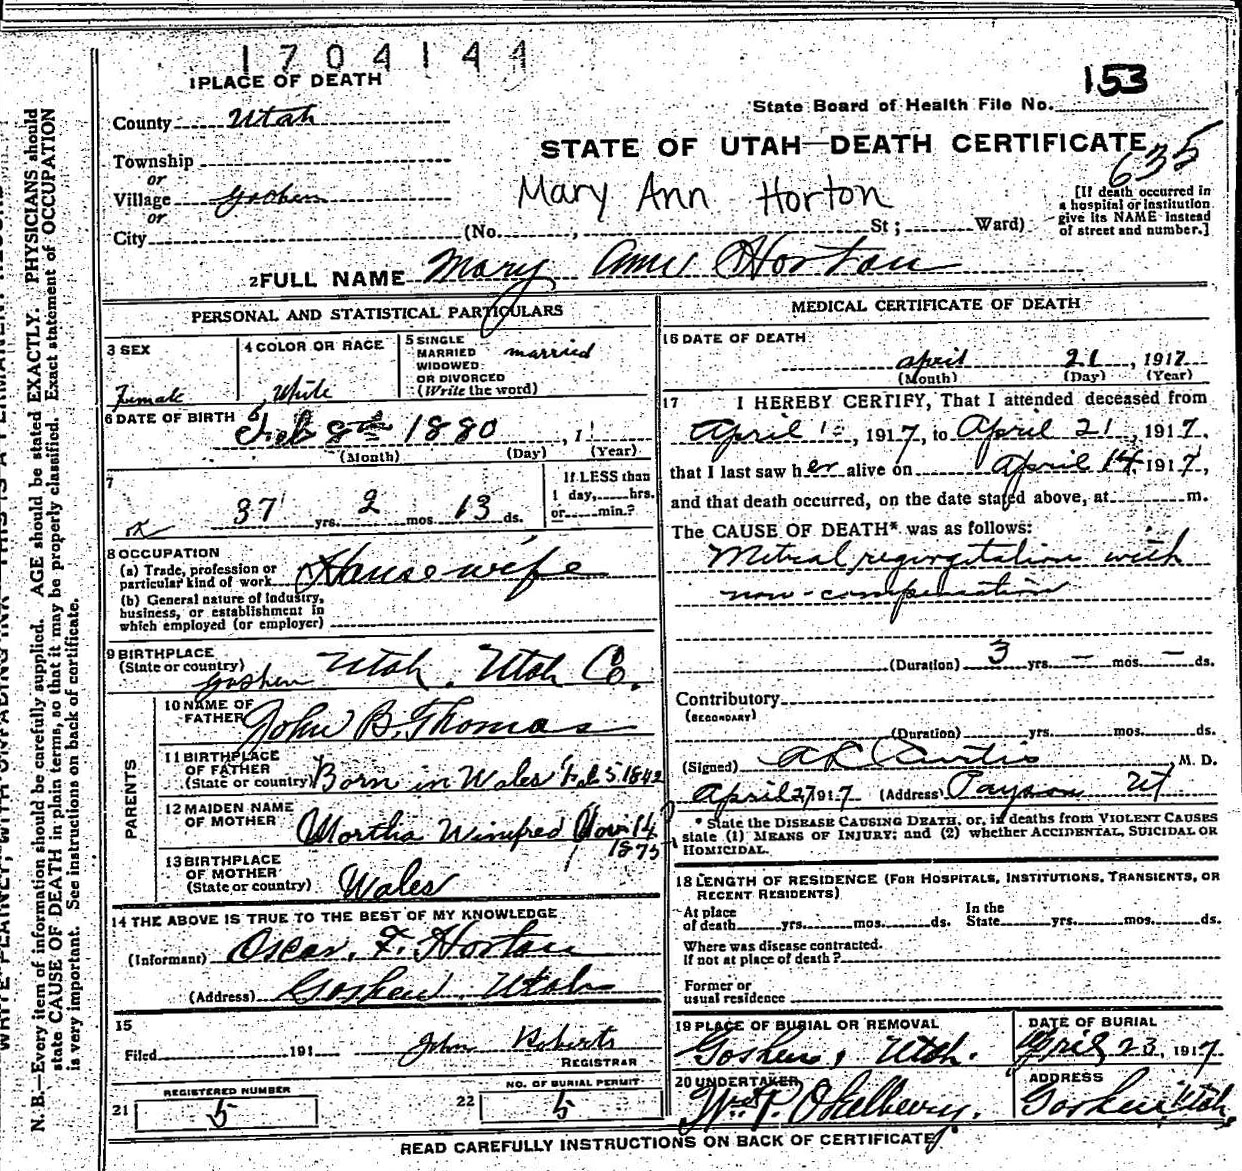 1704144
1 PLACE OF DEATH
153
State Board of Health File No.
County Utah
STATE OF UTAH—DEATH CERTIFICATE
635
Township
or
Village Goshen
or
City (No. , St; Ward)
Mary Ann Horton
[If death occurred in
a hospital or institution
give its NAME instead
of street and number.]
2 FULL NAME Mary Ann Horton
PERSONAL AND STATISTICAL PARTICULARS
3 SEX
Female
4 COLOR OR RACE
White
5 SINGLE
MARRIED
WIDOWED
OR DIVORCED
(Write the word)
married
6 DATE OF BIRTH
Feb 8th 1880 , 1
(Month) (Day) (Year)
7
37 yrs. 2 mos 13 ds.
If LESS than
1 day, hrs.
or min.?
8 OCCUPATION
(a) Trade, profession or
particular kind of work Housewife
(b) General nature of industry,
business, or establishment in
which employed (or employer)
9 BIRTHPLACE
(State or country)
Goshen Utah. Utah Co.
PARENTS
10 NAME OF
FATHER John B. Thomas
11 BIRTHPLACE
OF FATHER
(State or country) Born in Wales Feb 5 1842
12 MAIDEN NAME
OF MOTHER Martha Winifred Nov 14
13 BIRTHPLACE
OF MOTHER
(State or country) Wales
14 THE ABOVE IS TRUE TO THE BEST OF MY KNOWLEDGE
(Informant) Oscar. F. Horton
(Address) Goshen. Utah
15
Filed 191 John Roberts
REGISTRAR
21 REGISTERED NUMBER
5
22 NO. OF BURIAL PERMIT
5
MEDICAL CERTIFICATE OF DEATH
16 DATE OF DEATH
April 21, 1917
(Month) (Day) (Year)
17 I HEREBY CERTIFY, That I attended deceased from
April 1-, 1917, to April 21, 1917,
that I last saw her alive on April 14, 1917,
and that death occurred, on the date stated above, at m.
The CAUSE OF DEATH* was as follows:
Mitral regurgitation with
non-compensation
(Duration) 3 yrs. — mos. — ds.
Contributory
(SECONDARY)
(Duration) yrs. mos. ds.
(Signed) A L Curtis, M. D.
April 27 1917 (Address) Payson Ut
* State the DISEASE CAUSING DEATH, or, in deaths from VIOLENT CAUSES
state (1) MEANS OF INJURY; and (2) whether ACCIDENTAL, SUICIDAL OR
HOMICIDAL.
18 LENGTH OF RESIDENCE (FOR HOSPITALS, INSTITUTIONS, TRANSIENTS, OR
RECENT RESIDENTS)
At place
of death yrs. mos. ds.
In the
State yrs. mos. ds.
Where was disease contracted.
if not at place of death?
Former or
usual residence
19 PLACE OF BURIAL OR REMOVAL
Goshen, Utah.
DATE OF BURIAL
April 23, 1917
20 UNDERTAKER
Wm P. Okelberry.
ADDRESS
Goshen, Utah
READ CAREFULLY INSTRUCTIONS ON BACK OF CERTIFICATE
N. B.—Every item of information should be carefully supplied. AGE should be stated EXACTLY. PHYSICIANS should
state CAUSE OF DEATH in plain terms, so that it may be properly classified. Exact statement of OCCUPATION
is very important. See instructions on back of certificate.